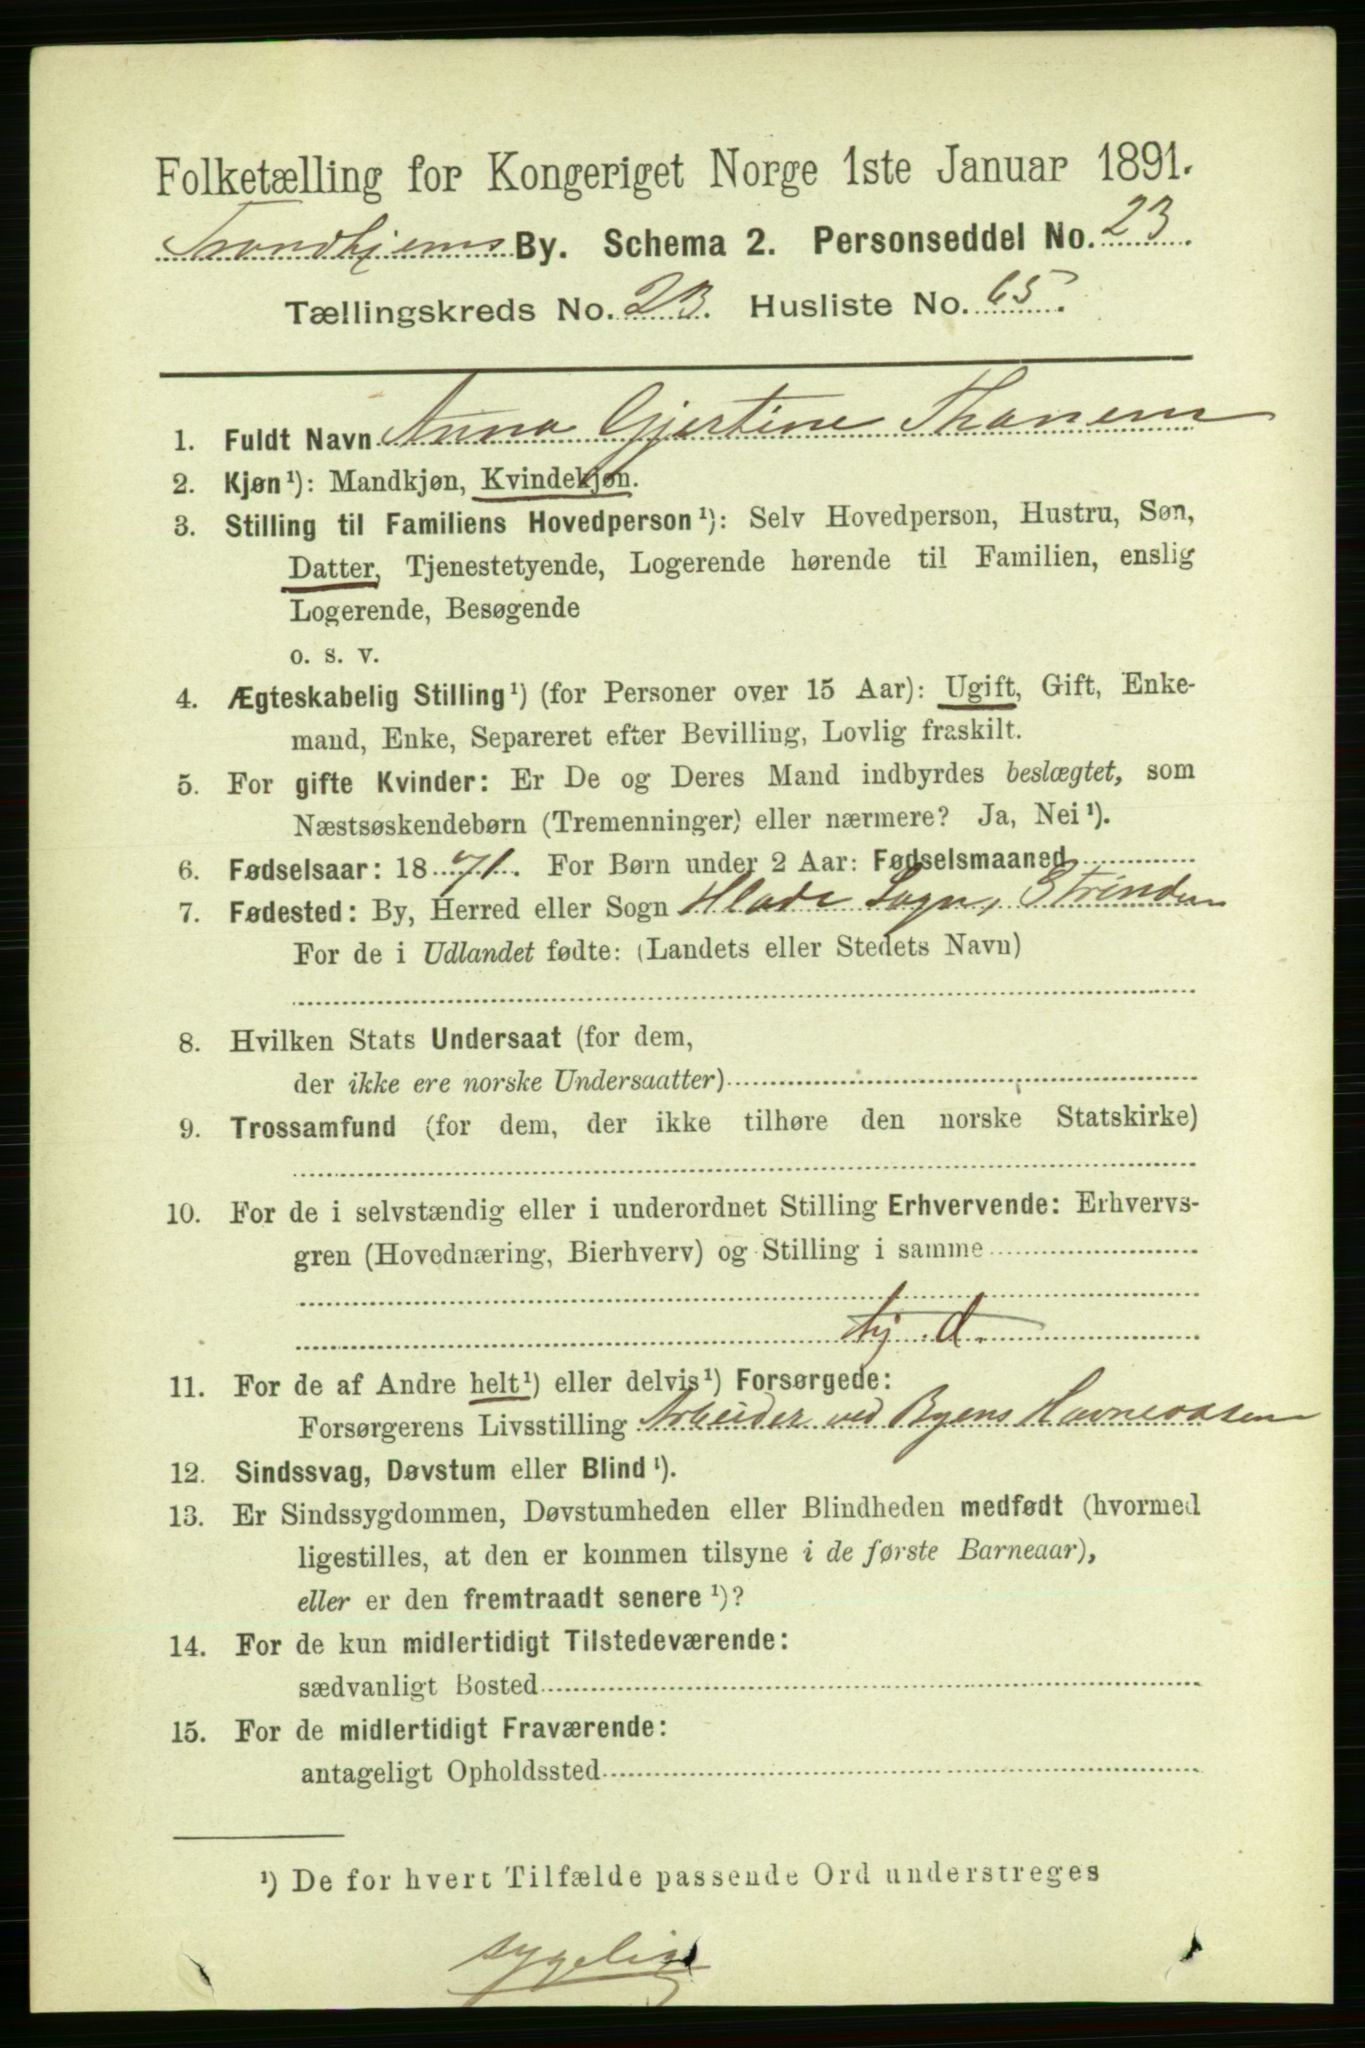 Folketælling for Kongeriget Norge 1ste Januar 1891.
Trondhjems By. Schema 2. Personseddel No. 23.
Tællingskreds No. 23. Husliste No. 65.
1. Fuldt Navn Anna Gjertine Thanem
2. Kjøn¹): Mandkjøn, Kvindekjøn.
3. Stilling til Familiens Hovedperson¹): Selv Hovedperson, Hustru, Søn,
Datter, Tjenestetyende, Logerende hørende til Familien, enslig
Logerende, Besøgende
o. s. v.
4. Ægteskabelig Stilling¹) (for Personer over 15 Aar): Ugift, Gift, Enke-
mand, Enke, Separeret efter Bevilling, Lovlig fraskilt.
5. For gifte Kvinder: Er De og Deres Mand indbyrdes beslægtet, som
Næstsøskendebørn (Tremenninger) eller nærmere? Ja, Nei¹).
6. Fødselsaar: 1871. For Børn under 2 Aar: Fødselsmaaned
7. Fødested: By, Herred eller Sogn Hlade Sogn, Strinden
For de i Udlandet fødte: (Landets eller Stedets Navn)
8. Hvilken Stats Undersaat (for dem,
der ikke ere norske Undersaatter)
9. Trossamfund (for dem, der ikke tilhøre den norske Statskirke)
10. For de i selvstændig eller i underordnet Stilling Erhvervende: Erhvervs-
gren (Hovednæring, Bierhverv) og Stilling i samme
tj. d.
11. For de af Andre helt¹) eller delvis¹) Forsørgede:
Forsørgerens Livsstilling Arbeider ved Byens Havnevæsen
12. Sindssvag, Døvstum eller Blind¹).
13. Er Sindssygdommen, Døvstumheden eller Blindheden medfødt (hvormed
ligestilles, at den er kommen tilsyne i de første Barneaar),
eller er den fremtraadt senere¹)?
14. For de kun midlertidigt Tilstedeværende:
sædvanligt Bosted
15. For de midlertidigt Fraværende:
antageligt Opholdssted
¹) De for hvert Tilfælde passende Ord understreges
sygelig